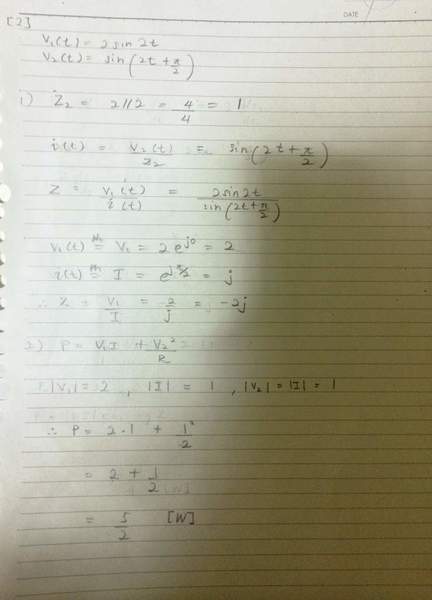 DATE
[2]
V₁(t) = 2 sin 2t
V₂(t) = sin(2t + π/2)
1) Z₂ = 2//2 = 4/4 = 1
i(t) = V₂(t)/Z₂ = sin(2t + π/2)
Z = V₁(t)/i(t) = 2 sin 2t / sin(2t + π/2)
V₁(t) ⇒ V₁ = 2 e^{j0} = 2
i(t) ⇒ I = e^{jπ/2} = j
∴ Z = V₁/I = 2/j = -2j
2) P = V₁I + V₂²/R
|V₁| = 2 , |I| = 1 , |V₂| = |I| = 1
∴ P = 2・1 + 1²/2
= 2 + 1/2
= 5/2 [W]